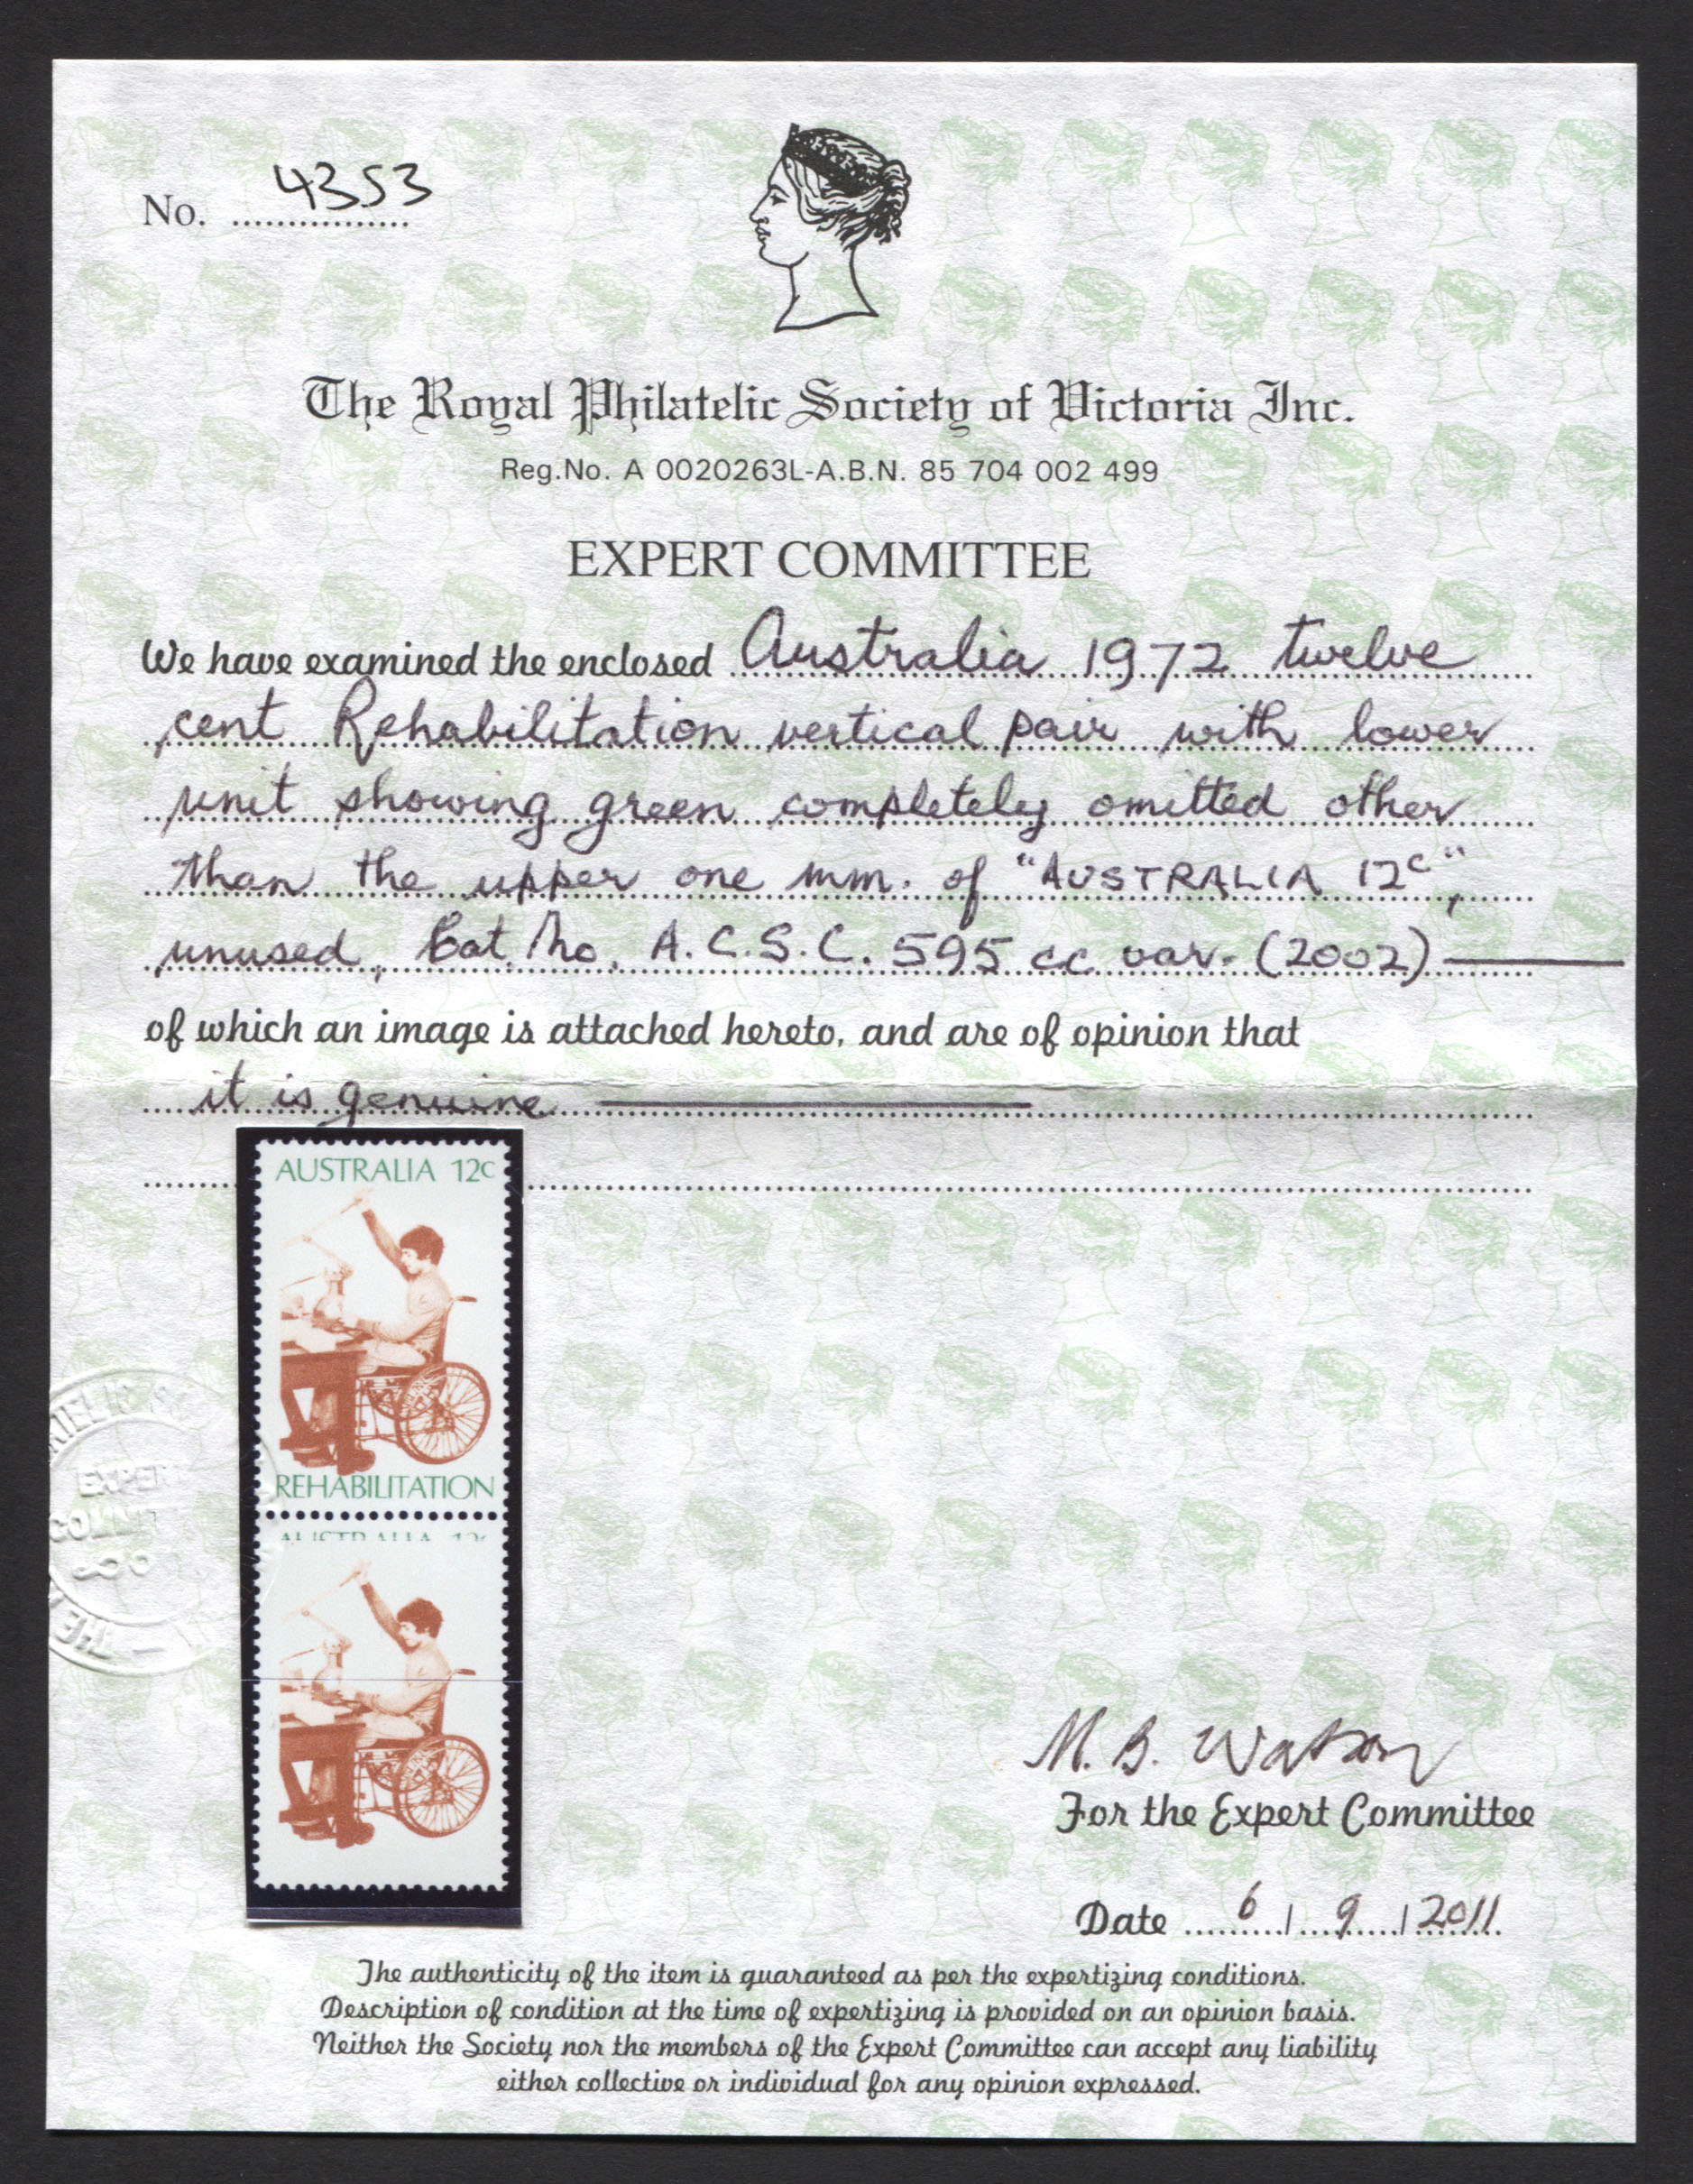 No. 4353
The Royal Philatelic Society of Victoria Inc.
Reg.No. A 0020263L-A.B.N. 85 704 002 499
EXPERT COMMITTEE
We have examined the enclosed Australia 1972 twelve
cent Rehabilitation vertical pair with lower
unit showing green completely omitted other
than the upper one mm. of "AUSTRALIA 12c",
unused, Cat. No. A.C.S.C. 595 cc var. (2002)
of which an image is attached hereto, and are of opinion that
it is genuine
AUSTRALIA 12c
REHABILITATION
AUSTRALIA 12c
EXPER
COMM
THE
M. B. Watson
For the Expert Committee
Date 6 / 9 / 2011
The authenticity of the item is guaranteed as per the expertizing conditions.
Description of condition at the time of expertizing is provided on an opinion basis.
Neither the Society nor the members of the Expert Committee can accept any liability
either collective or individual for any opinion expressed.